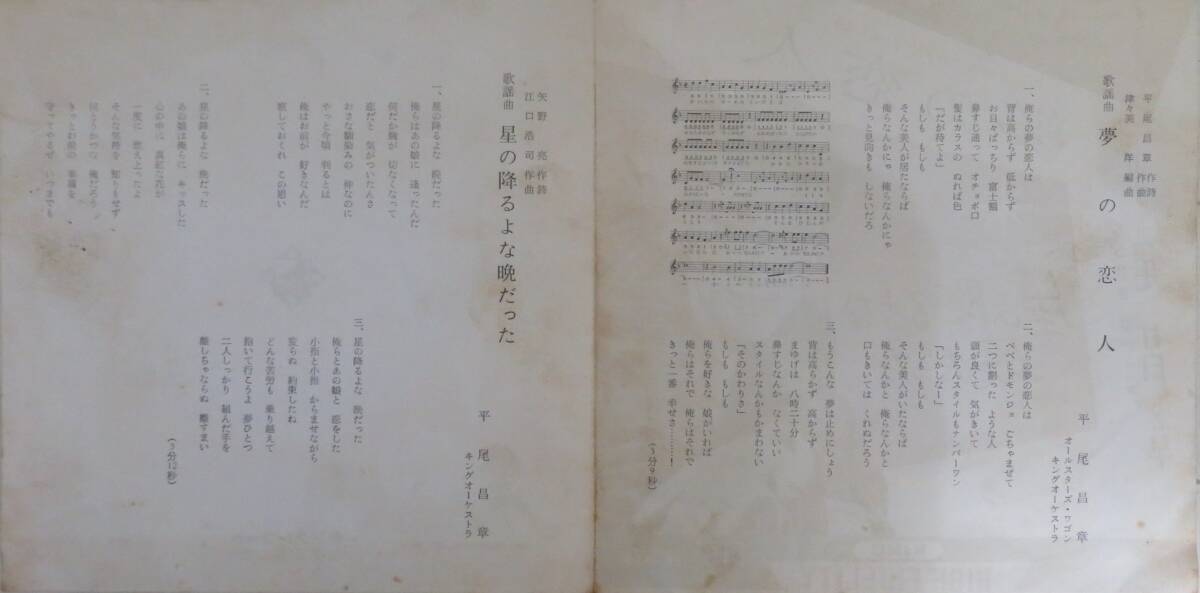 歌謡曲 夢の恋人
平尾昌章 作詩 作曲
津々美 洋 編曲
平尾昌章
オールスターズ・ワゴン
キングオーケストラ
一、俺らの夢の恋人は
背は高からず 低からず
お目々ぱっちり 富士額
鼻すじ通って オチョボ口
髪はカラスの ぬれば色
「だが待てよ」
もしも もしも
そんな美人が居たならば
俺らなんかにゃ 俺らなんかにゃ
きっと見向きも しないだろ
二、俺らの夢の恋人は
ベベとドモンジョ ごちゃまぜて
二つに割った ような人
頭が良くて 気がきいて
もちろんスタイルもナンバーワン
「しかしなー」
もしも もしも
そんな美人がいたならば
俺らなんかと 俺らなんかと
口もきいては くれぬだろう
三、もうこんな 夢は止めにしょう
背は高らかず 高からず
まゆげは 八時二十分
鼻すじなんか なくていい
スタイルなんかもかまわない
「そのかわりさ」
もしも もしも
俺らを好きな 娘がいれば
俺らはそれで 俺らはそれで
きっと一番 幸せさ………!
(3分9秒)
歌謡曲 星の降るよな晩だった
矢野 亮 作詩
江口浩司 作曲
平尾昌章
キングオーケストラ
一、星の降るよな 晩だった
俺らはあの娘に 逢ったんだ
何だか胸が 切なくなって
恋だと 気がついたんさ
おさな馴染みの 仲なのに
やっと今頃 判るとは
俺はお前が 好きなんだ
察しておくれ この思い
二、星の降るよな 晩だった
あの娘は俺らに キッスした
心の中に 真紅な花が
一度に 燃えとったよ
そんな気持を 知りもせず
何とうかつな 俺だろう
きっとお前の 幸福を
守ってやるぜ いつまでも
三、星の降るよな 晩だった
俺らとあの娘と 恋をした
小指と小指 からませながら
変らぬ 約束したね
どんな苦労も 乗り越えて
抱いて行こうよ 夢ひとつ
二人しっかり 組んだ手を
離しちゃならぬ 離すまい
(3分12秒)